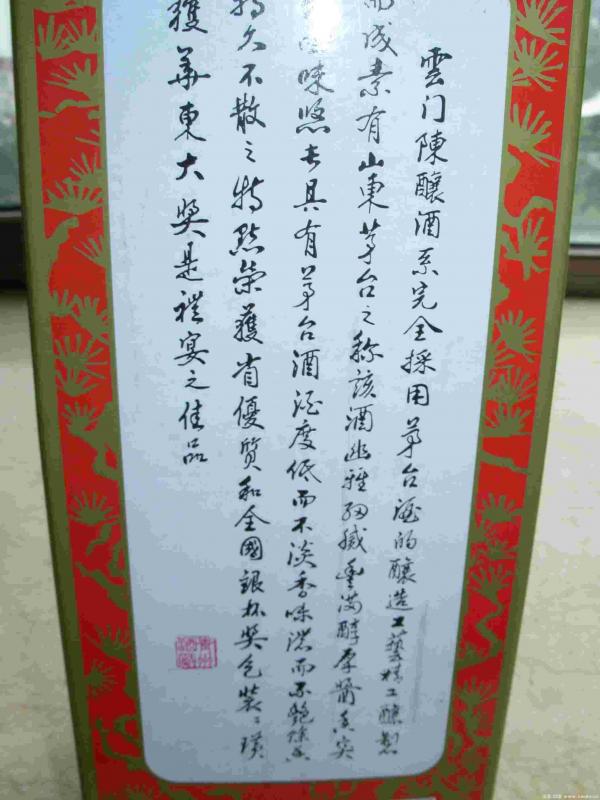 雲门陳釀酒系完全採用茅台酒的釀造工藝精工釀製
而成素有山東茅台之称該酒幽雅细腻豐满醇厚醬香突
味悠長具有茅台酒酒度低而不淡香味濃而不艶
持久不散之特點荣獲省優質和全國銀杯奖包装装璜
獲華東大奬是禮宴之佳品